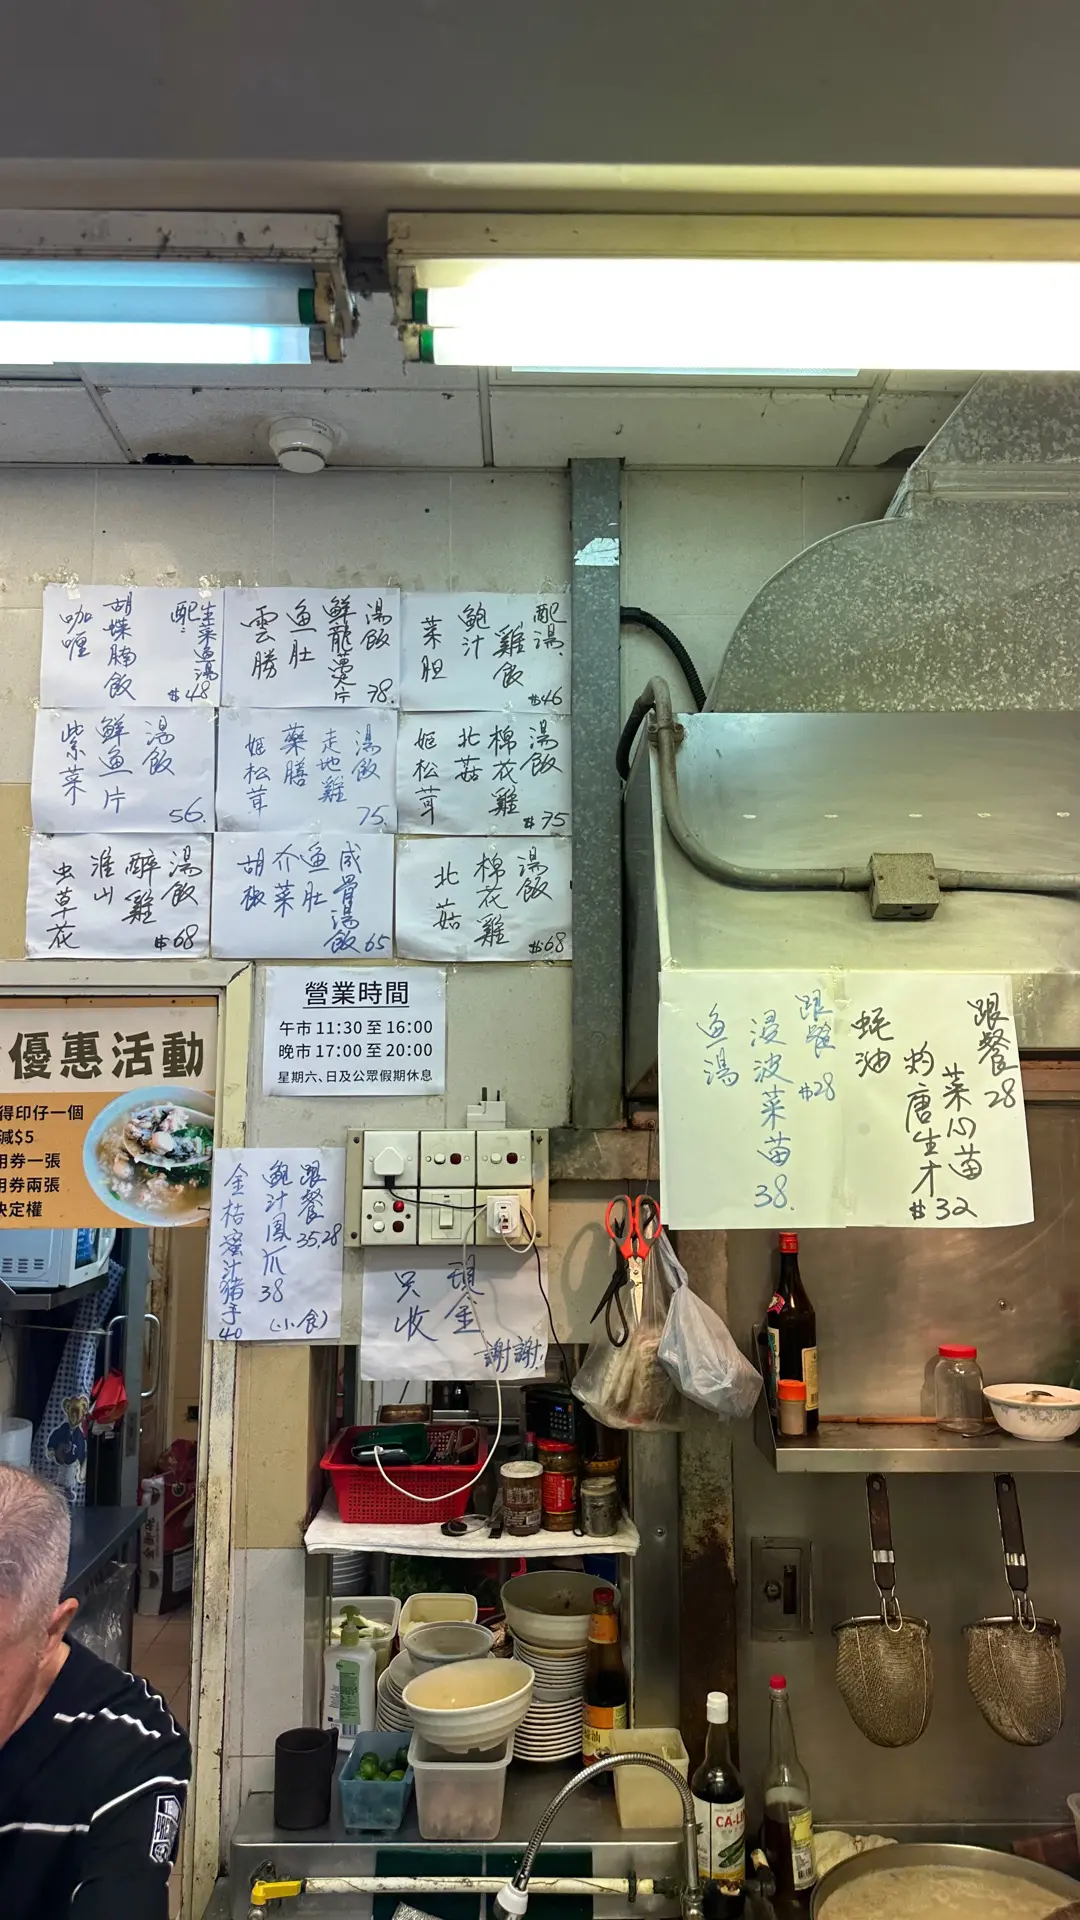 咖喱
胡蝶腩飯
配:生菜魚湯
$48
雲勝
魚肚
鮮龍躉片
湯飯
78.
菜胆
鮑汁
雞飯
配湯.
$46
紫菜
鮮魚片
湯飯
56.
姬松茸
藥膳
走地雞
湯飯
75.
姬松茸
北菇
棉花雞
湯飯
$75
虫草花
淮山
醉雞
湯飯
$68
胡椒
介菜
魚肚
咸骨湯飯
65
北菇
棉花雞
湯飯
$68
營業時間
午市 11:30 至 16:00
晚市 17:00 至 20:00
星期六、日及公眾假期休息
優惠活動
得印仔一個
減$5
用券一張
用券兩張
決定權
魚湯
浸波菜苗
38.
跟餐
$28
蚝油
灼唐生才
$32
菜心苗
跟餐
28
金桔蜜汁豬手
40
鮑汁鳳爪
38
跟餐
35,28
(小食)
只收
現金
謝謝!